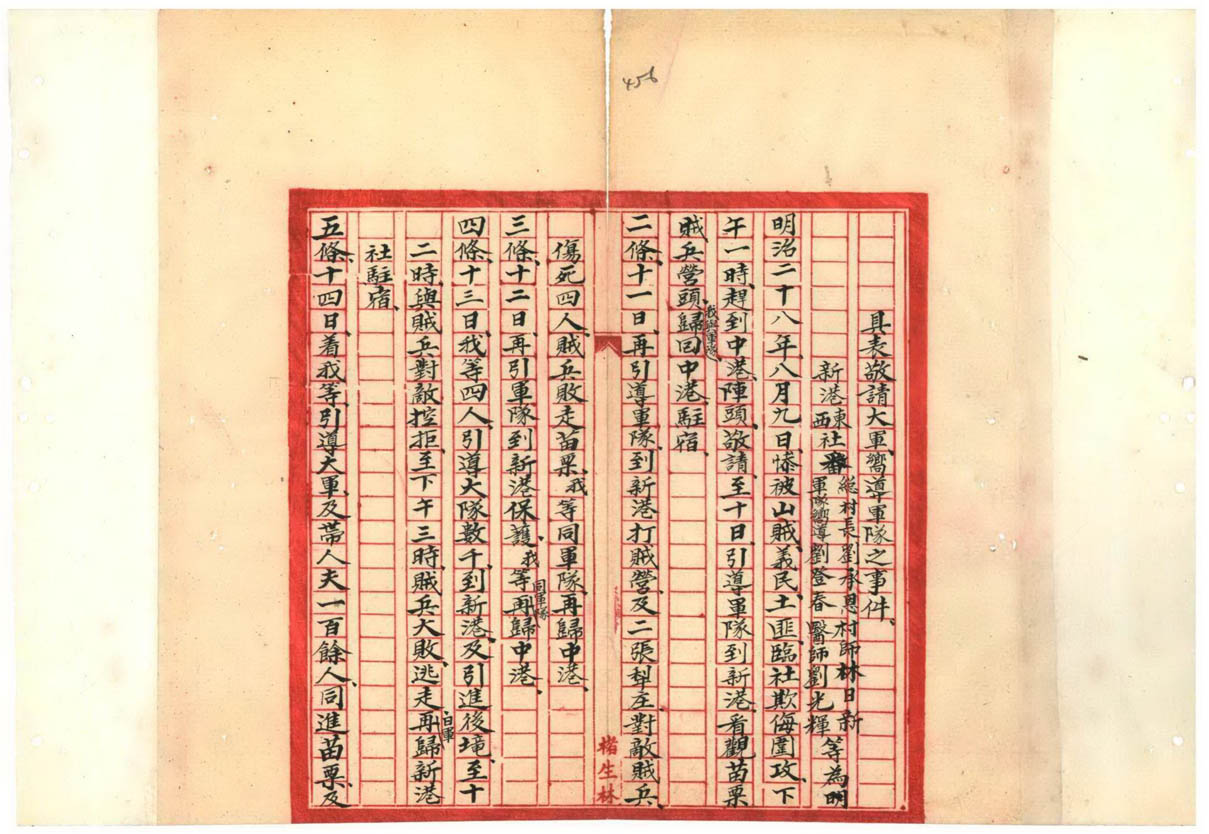 456
具表敬請大軍嚮導軍隊之事件、
新港東西社番總村長劉承恩村師林日新軍隊嚮導劉登春醫師劉光輝等為明
明治二十八年、八月九日、慘被山賊、義民、土匪、臨社欺侮圍攻、下
午一時、趕到中港、陣頭、敬請、至十日、引導軍隊到新港、看觀苗栗
賊兵營頭、我與軍隊、歸回中港、駐宿、
二條、十一日、再引導軍隊、到新港打賊營、及二張犁庄、對敵賊兵、
傷死四人、賊兵敗走、苗栗、我等同軍隊、再歸中港、
三條、十二日、再引軍隊到新港保護、我等同軍隊再歸中港、
四條、十三日、我等四人、引導大隊數千、到新港、及引進後境、至十
二時、與賊兵對敵控拒、至下午三時、賊兵大敗、逃走、日軍再歸新港
社駐宿、
五條、十四日、着我等、引導大軍、及帶人夫一百餘人、同進苗栗、及
楮生林